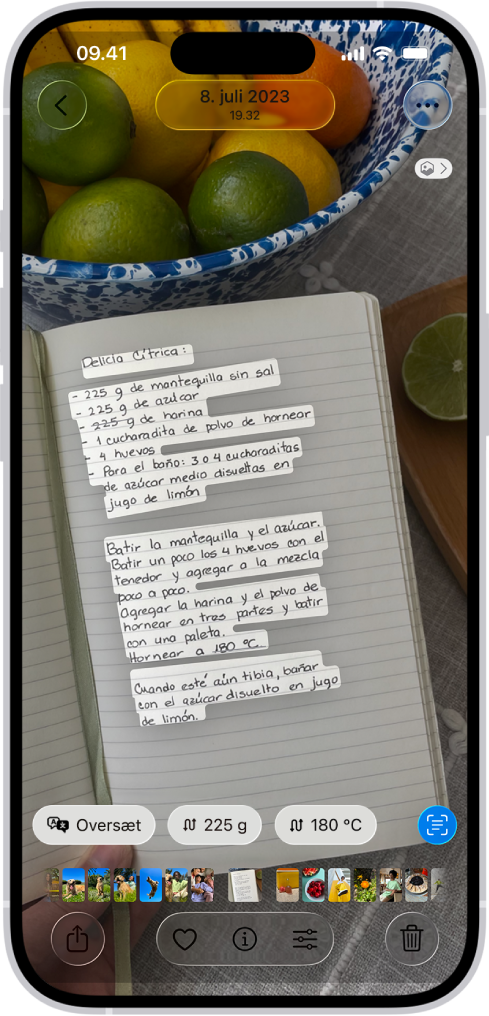 09.41
8. juli 2023
19.32
Delicia Cítrica:
- 225 g de mantequilla sin sal
- 225 g de azúcar
- 225 g de harina
- 1 cucharadita de polvo de hornear
- 4 huevos
- Para el baño: 3 o 4 cucharaditas
de azúcar medio disueltas en
jugo de limón
Batir la mantequilla y el azúcar.
Batir un poco los 4 huevos con el
tenedor y agregar a la mezcla
poco a poco.
Agregar la harina y el polvo de
hornear en tres partes y batir
con una paleta.
Hornear a 180 °C.
Cuando esté aún tibia, bañar
con el azúcar disuelto en jugo
de limón.
Oversæt
225 g
180 °C